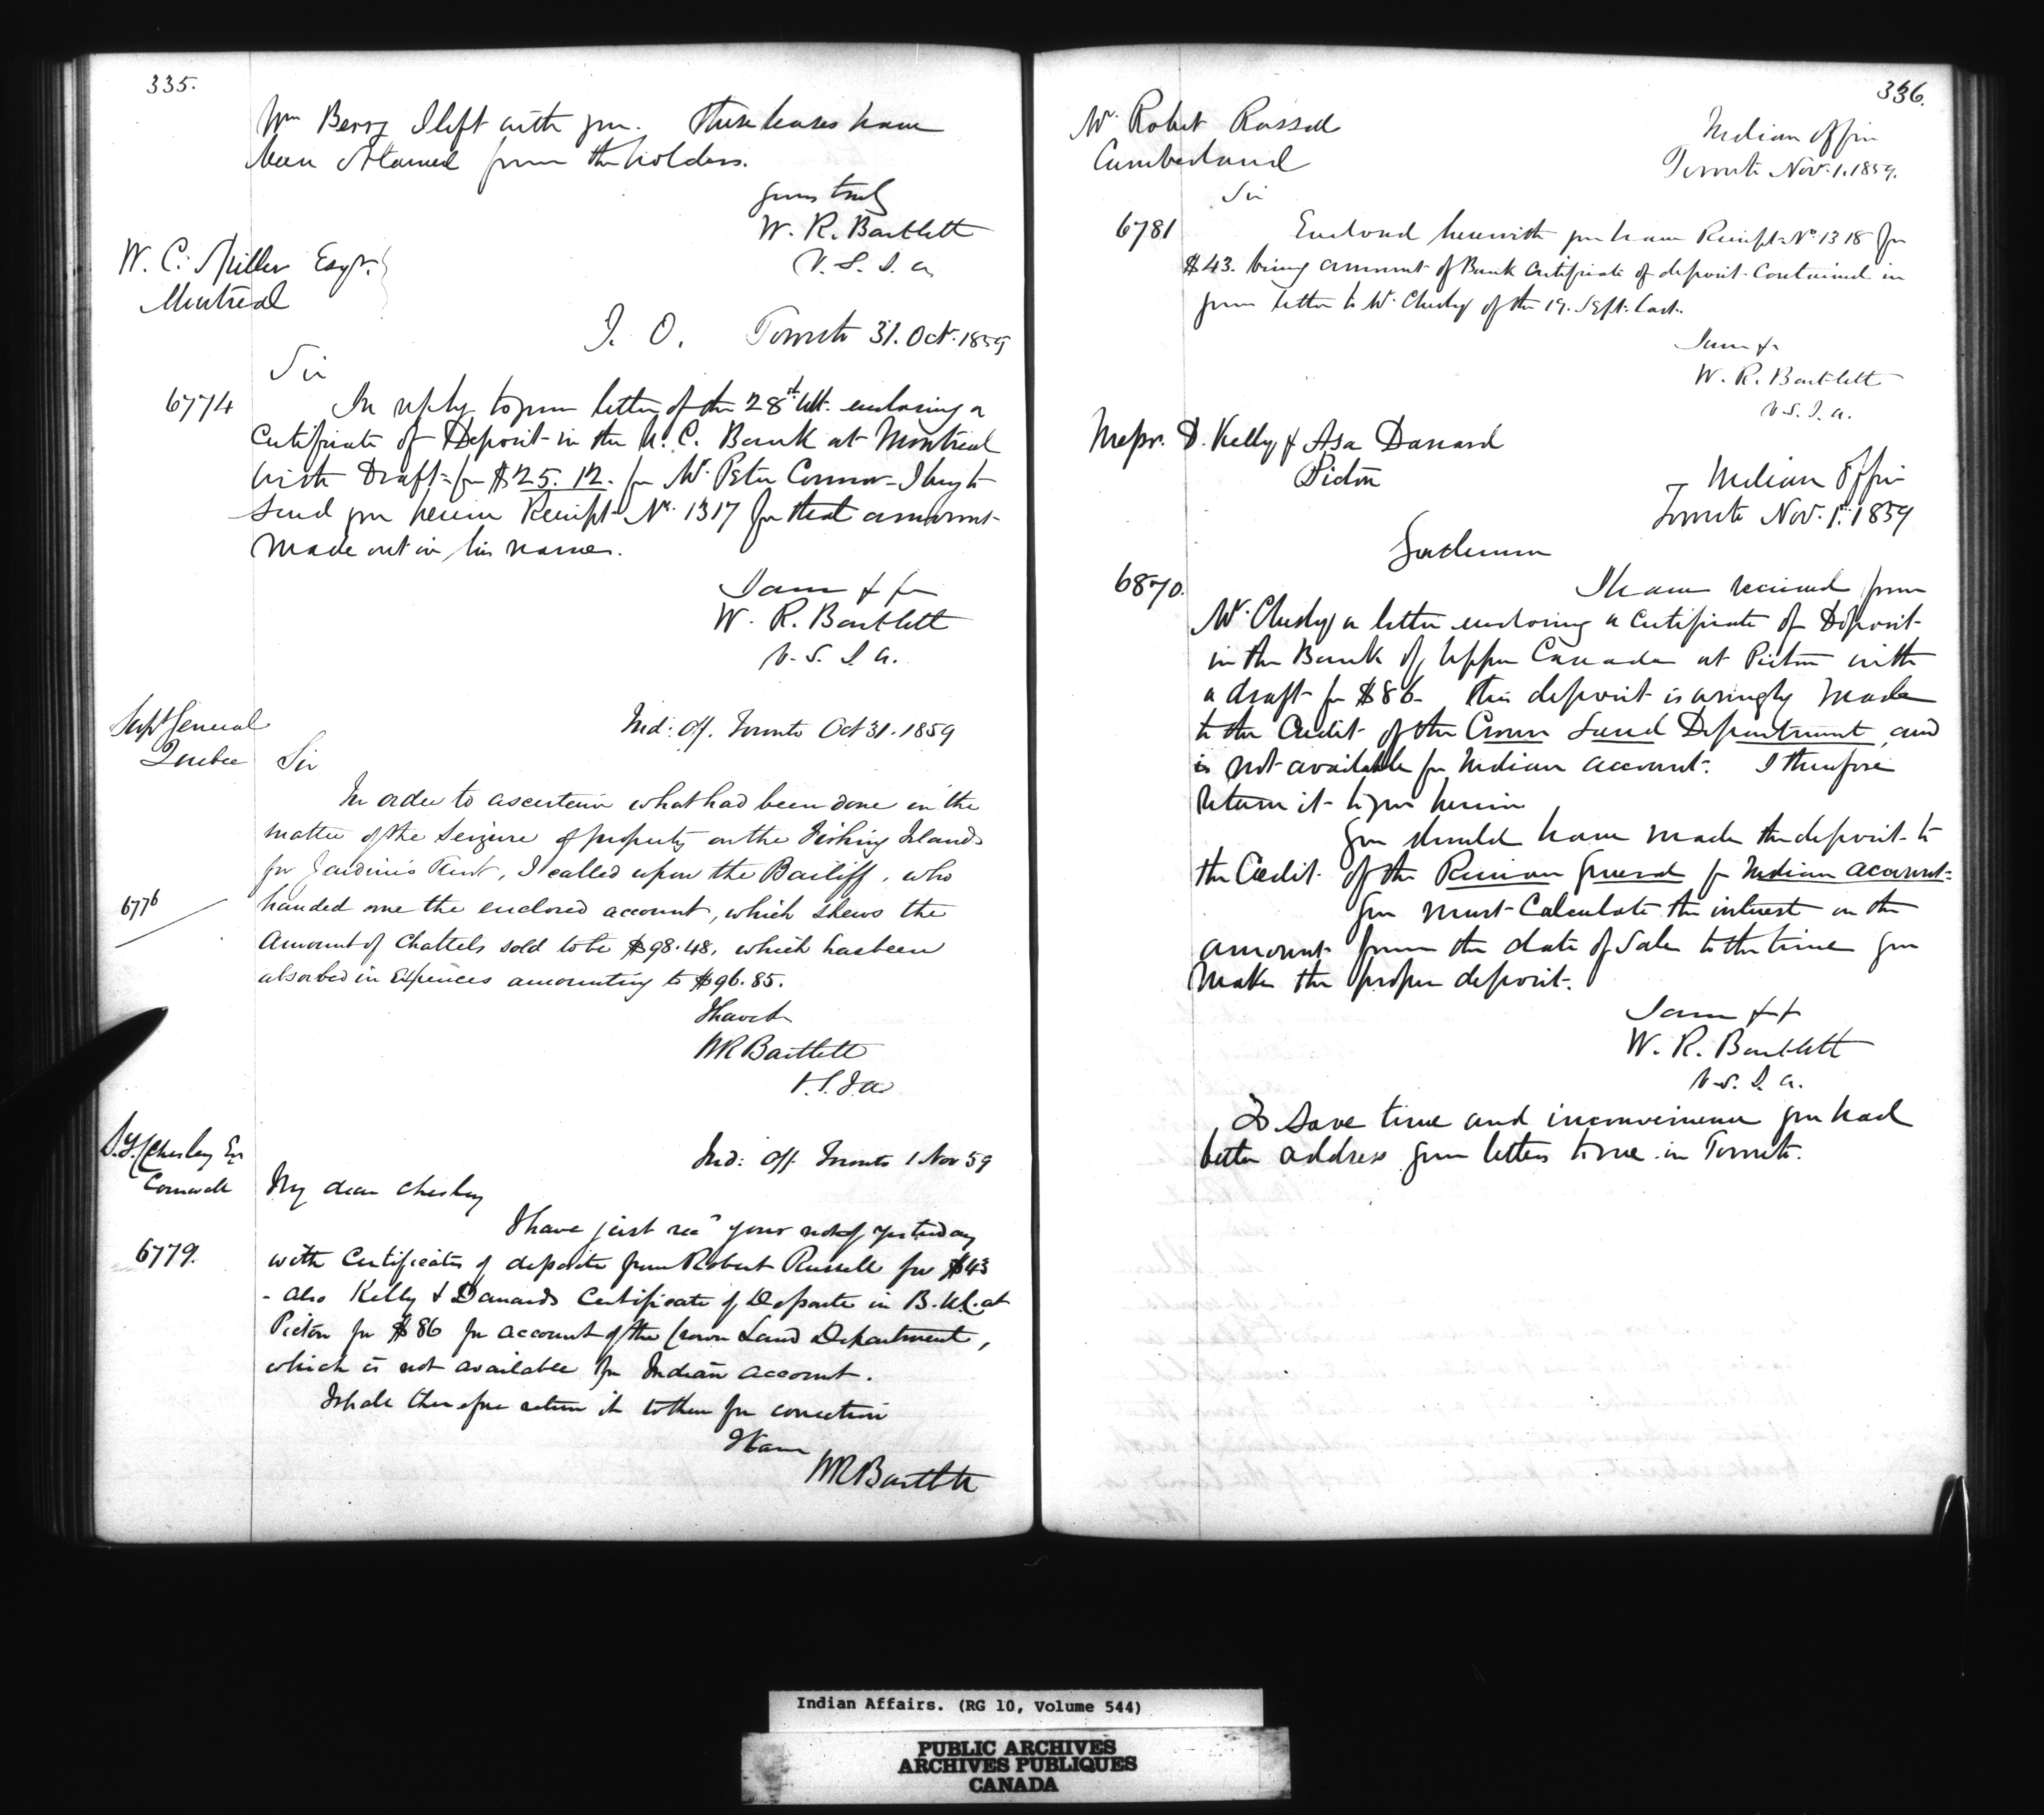 335.
Wm Berry I left with you. These leases have
been obtained from the holders.
yours truly
W. R. Bartlett
V. S. I. A.
W. C. Miller Esqr.
Montreal
I. O. Toronto 31. Oct. 1859
Sir
6774
In reply to your letter of the 28th ult. enclosing a
Certificate of Deposit in the U. C. Bank at Montreal
with Draft for $25.12. for Mr. Peter Connor I beg to
send you herein Receipt No. 1317 for that amount
made out in his name.
I am &
W. R. Bartlett
V. S. I. A.
Supt General
Quebec
Ind: Off. Toronto Oct 31. 1859
Sir
In order to ascertain what had been done in the
matter of the seizure of property on the Fishing Islands
for Jardine's Rent, I called upon the Bailiff, who
6776
handed me the enclosed account, which shews the
Amount of Chattels sold to be $98.48, which has been
absorbed in Expences amounting to $96.85.
I have &
WR Bartlett
V. S. I A
S. Y. Chesley Esq
Cornwall
Ind: Off. Toronto 1 Nov 59
My dear Chesley
I have just recd your note of yesterday
6779.
with Certificates of deposite from Robert Russell for $43
- also Kelly & Danards Certificate of Deposite in B. U.C. at
Picton for $86 for account of the Crown Land Department,
which is not available for Indian Account.
I shall therefore return it to them for correction
WR Bartlett
336.
Mr. Robert Russell
Cumberland
Indian Office
Toronto Nov. 1. 1859.
Sir
6781
Enclosed herewith you have Receipt No. 1318 for
$43. being amount of Bank Certificate of deposit contained in
your letter to Mr. Chesley of the 19. Sept. last.
I am &
W. R. Bartlett
V. S. I. A.
Messr. D. Kelly & Asa Danard
Picton
Indian Office
Toronto Nov. 1. 1859
Gentlemen
6870.
I have received from
Mr. Chesley a letter enclosing a Certificate of Deposit
in the Bank of Upper Canada at Picton with
a draft for $86. This deposit is wrongly made
to the Credit of the Crown Land Department, and
is not available for Indian account. I therefore
return it to you herein
You should have made the deposit to
the Credit of the Receiver General for Indian account.
You must Calculate the interest on the
amount from the date of Sale to the time you
make the proper deposit.
I am &
W. R. Bartlett
V. S. I. A.
To save time and inconvenience you had
better address your letters to me in Toronto.
Indian Affairs. (RG 10, Volume 544)
PUBLIC ARCHIVES
ARCHIVES PUBLIQUES
CANADA